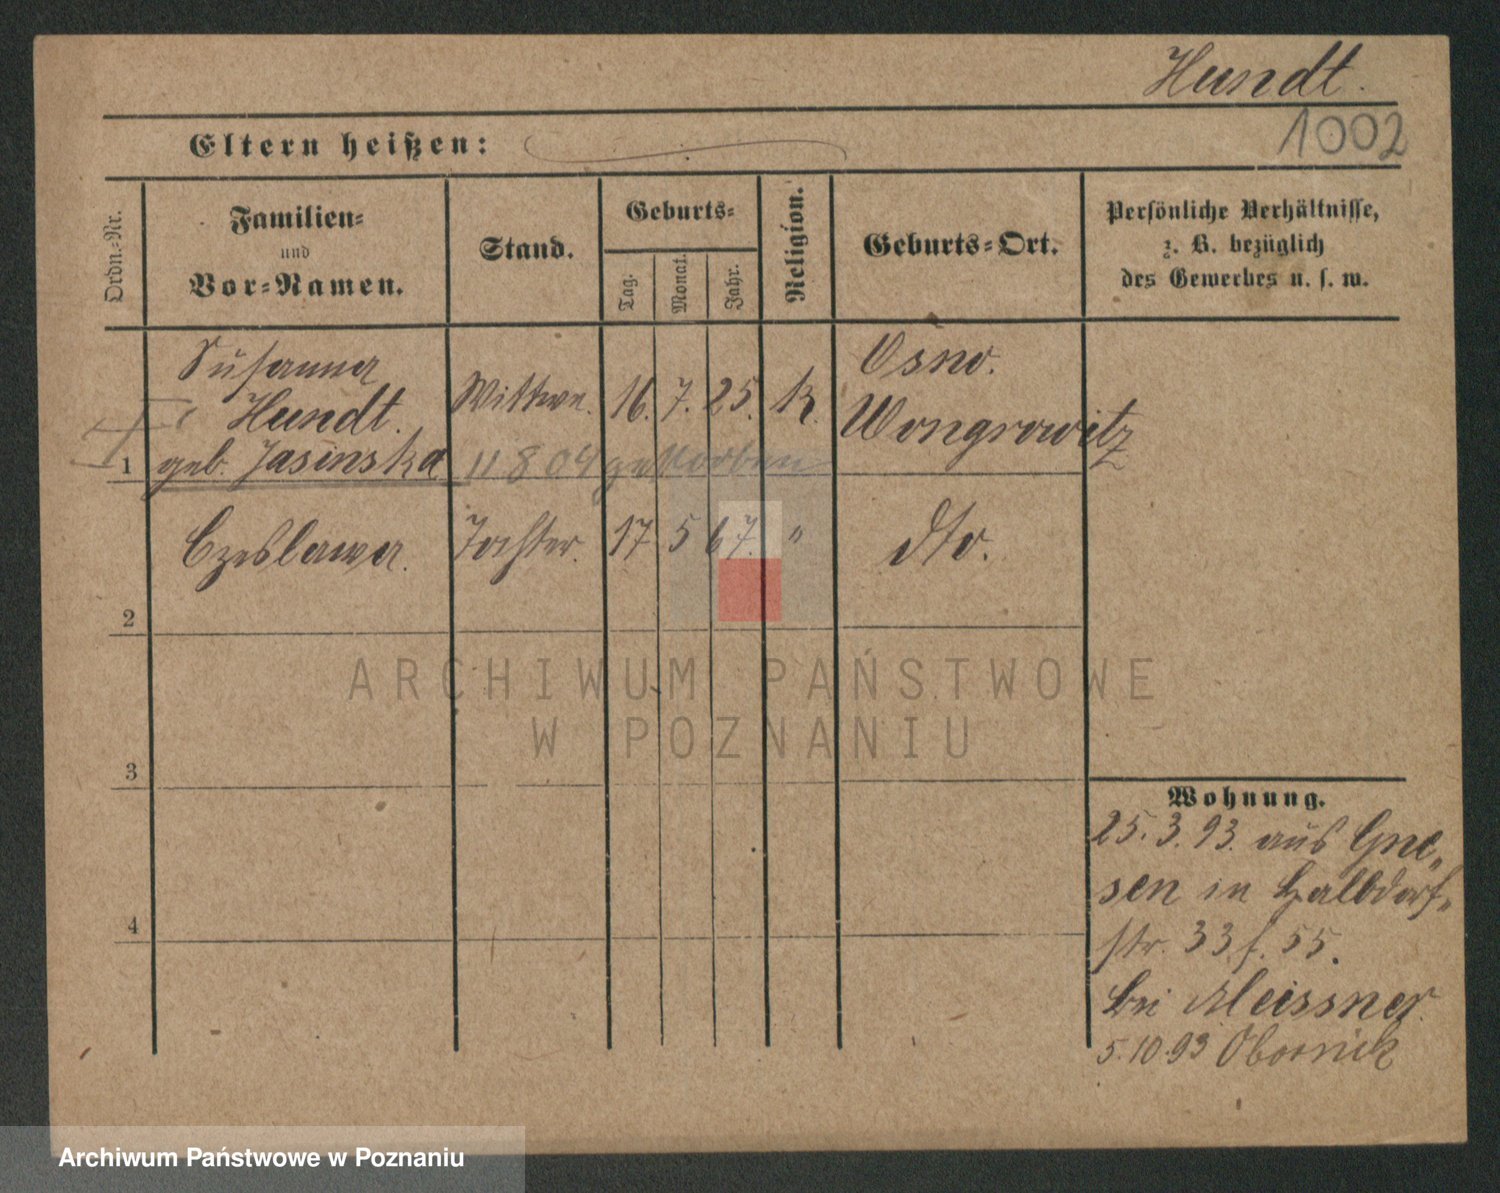 Hundt.
1002
Eltern heißen:
Ordn.-Nr.
Familien-
und
Vor-Namen.
Stand.
Geburts-
Tag.
Monat.
Jahr.
Religion.
Geburts-Ort.
Persönliche Verhältnisse,
z. B. bezüglich
des Gewerbes u. s. w.
1
Susanna
Hundt.
geb. Jasinska
Wittwe. 16. 7. 25. K.
Osno.
Wongrowitz
11 8 04 gestorben
2
Czeslawa. Tochter. 17 5 67. " dto.
3
4
Wohnung.
25.3.93. aus Gne-
sen in Halbdorf-
str. 33 f. 55.
bei Meissner.
5.10.93 Obornik
ARCHIWUM PAŃSTWOWE
W POZNANIU
Archiwum Państwowe w Poznaniu